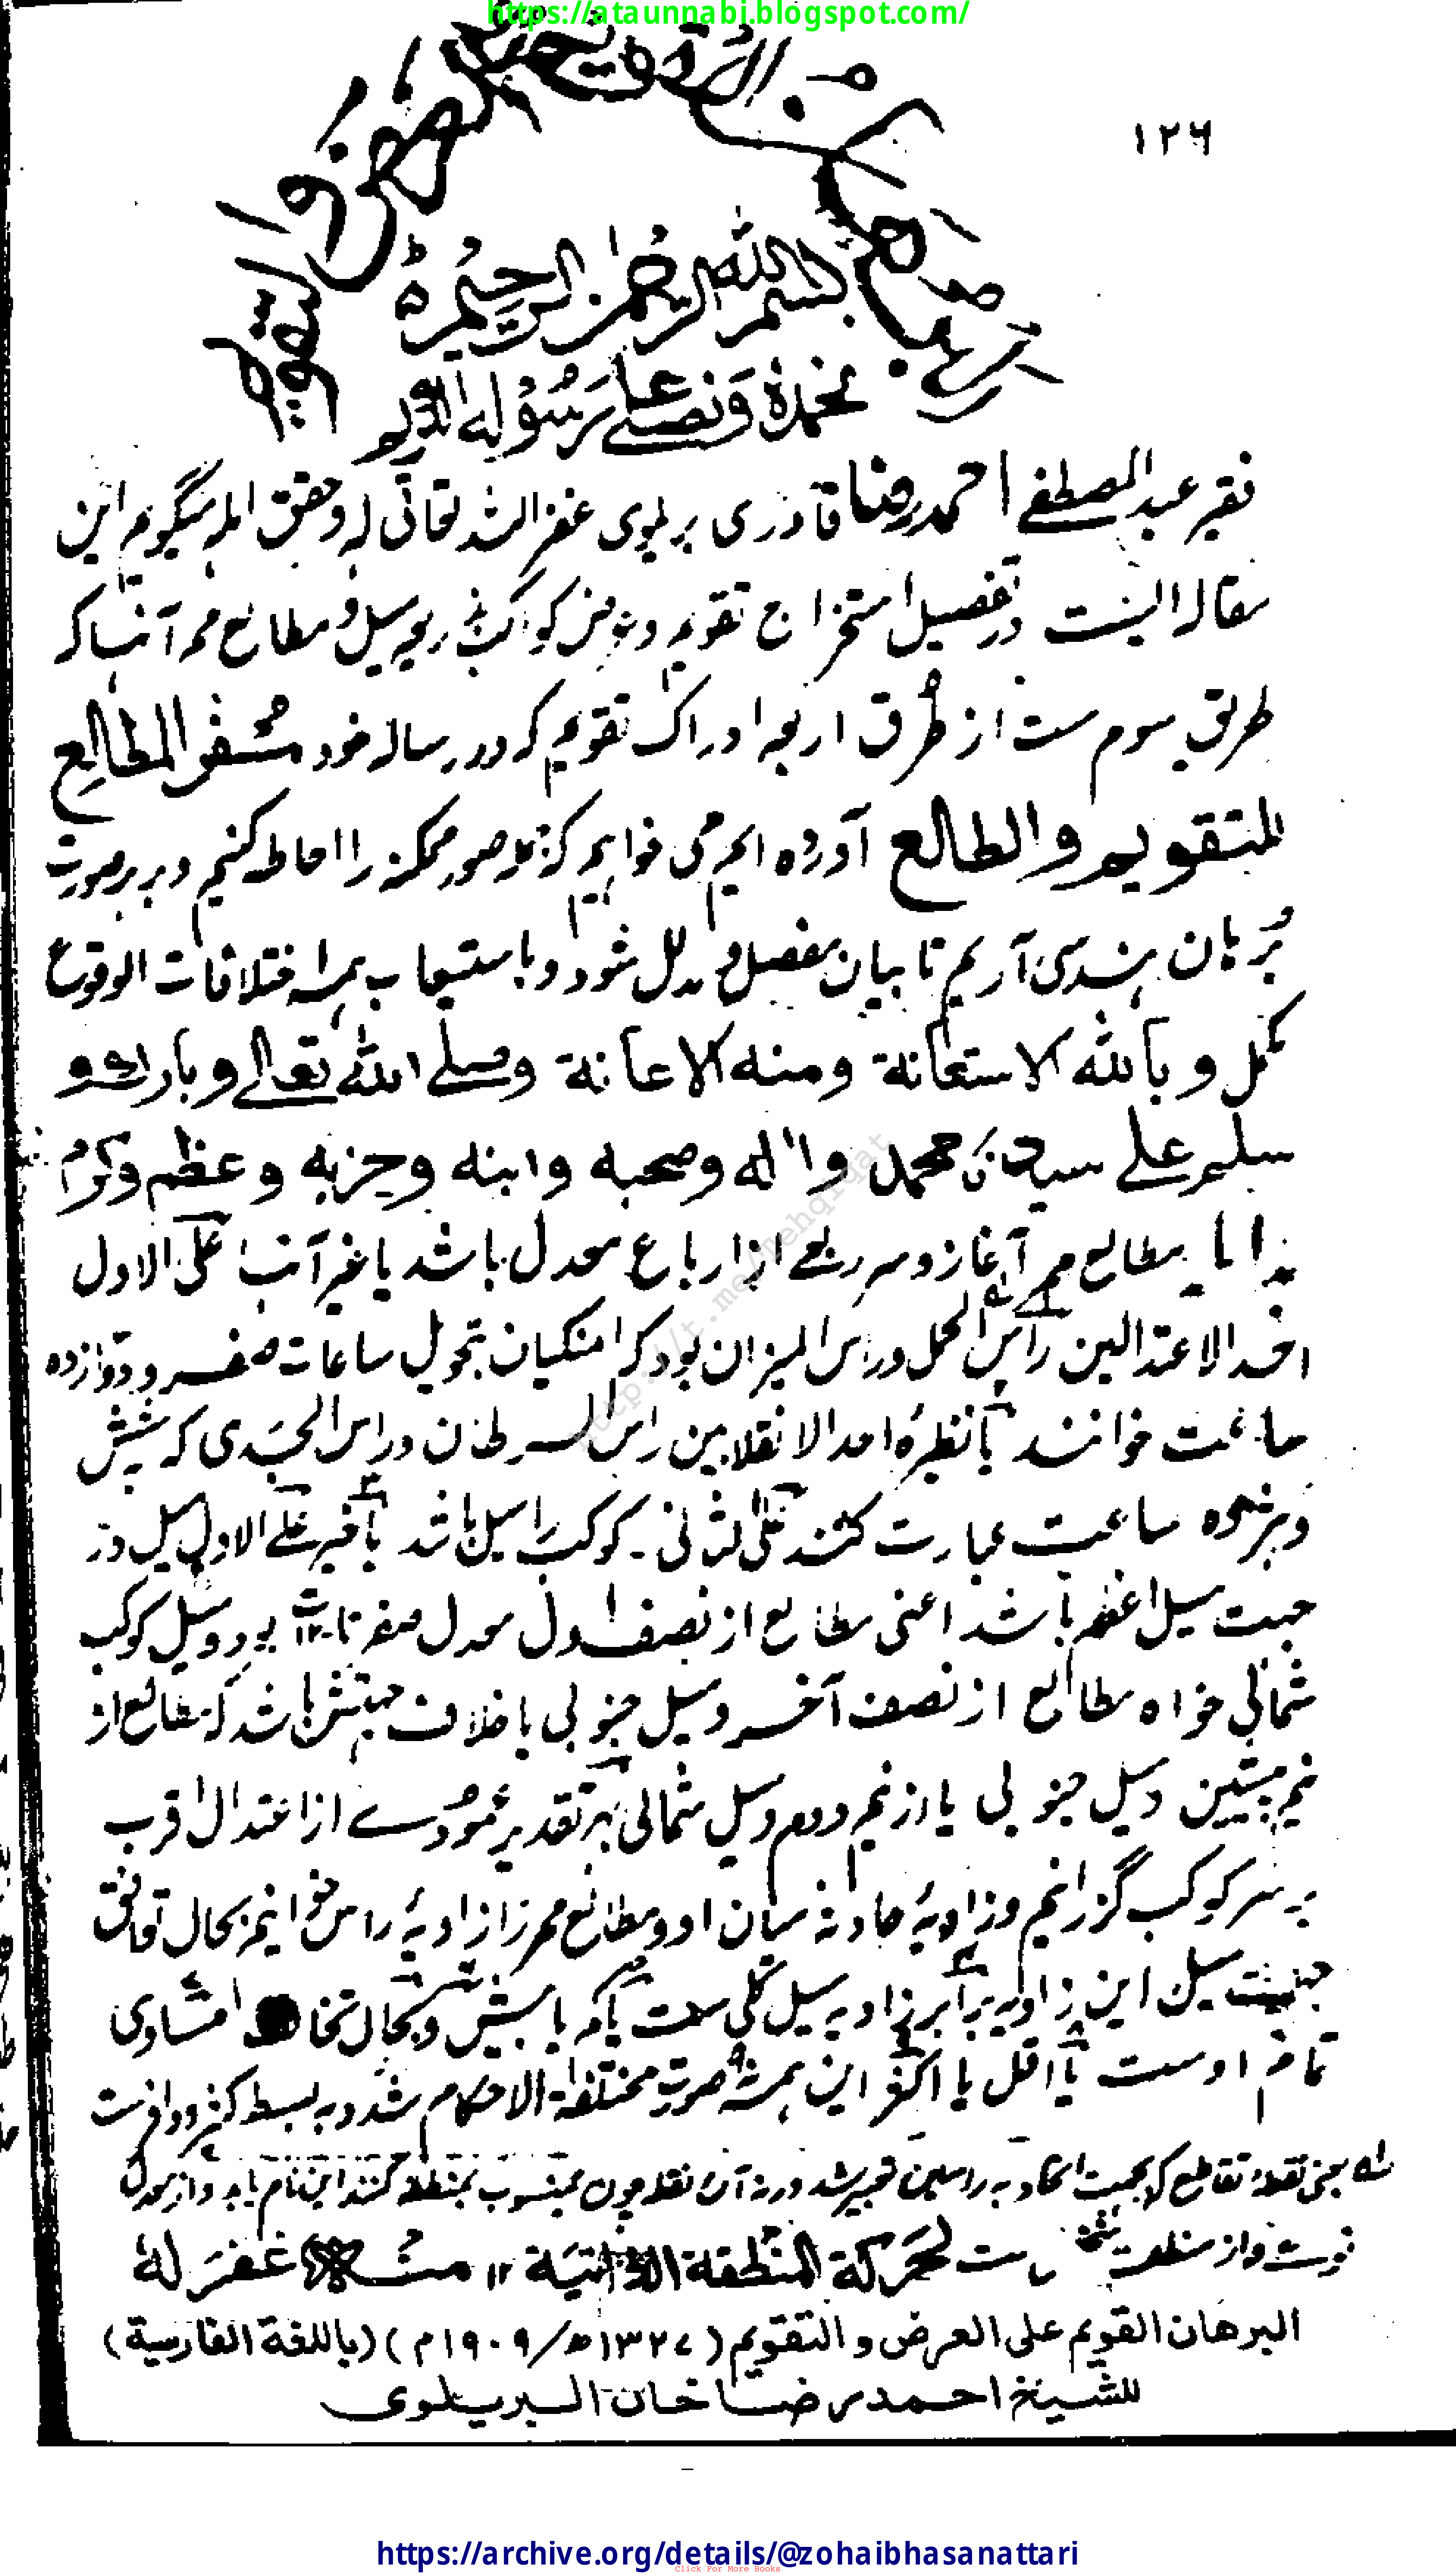 https://ataunnabi.blogspot.com/
١٢٦
بسم الله الرحمن الرحيم ه
نحمده ونصلے علے رسوله الكريم
فقیر عبد المصطفے احمد رضا قادری بریلوی غفر اللہ تعالی لہ وحقق املہ میگوید این
مقالہ ایست در تفصیل استخراج تقویم وعرض کواکب بذریعہ میل و مطالع ممر آنہا کہ
طریق سوم ست از طرق اربعہ ادراک تقویم کہ در رسالہ خود مسفر المطالع
للتقویم والطالع آوردہ ایم می خواہیم کہ جملہ صور ممکنہ را احاطہ کنیم و بر ہر صورت
برہان ہندسی آریم تا بیان مفصل و مدلل شود و باستیعاب ہمہ اختلافات الوقوع
مکمل و بالله الاستعانة ومنه الاعانة وصلے الله تعالے وبارك و
سلم علے سيدنا محمد واله وصحبه وابنه وحزبه وعظم وكرم
مطالع ممر آغاز و سر ربعے از ارباع معدل باشد یا غیر آنہا علی الاول
احد الاعتدالین راس الحمل و راس المیزان بود کہ امنکیان بتحویل ساعات صفر و دوازدہ
ساعت خوانند یا نظیرہ احد الانقلابین راس السرطان و راس الجدی کہ شش
وہژدہ ساعت عبارت کنند علی الثانی ۔ کوکب را میل باشد یا غیر علے الاول میل در
جہت میل اعظم باشد اعنی مطالع از نصف اول معدل صفر تا بود و میل کوکب
شمالی خواہ مطالع از نصف آخر و میل جنوبی یا خلاف جہتش باشد کہ مطالع از
نیم پیشین و میل جنوبی یا از نیم دوم و میل شمالی بہر تقدیر عمودے از اعتدال اقرب
بر سر کوکب گزرانیم وزاویۂ حادثہ میان او و مطالع ممر را زاویۂ راس خوانیم بحال توافق
جہت میل این زاویہ برابر زاویہ میل کلی ست یا کم یا بیش و بحال تخالف مساوی
تمام اوست یا اقل یا اکثر این ہمہ صورت مختلفة الاحکام شد
لحركة المنطقة الذاتية ١٢ منه غفر له
البرهان القويم على العرض و التقويم (١٣٢٧ھ/١٩٠٩م) (باللغة الفارسية)
للشيخ احمد رضا خان البريلوى
http://t.me/Tehqiqat
https://archive.org/details/@zohaibhasanattari
Click For More Books